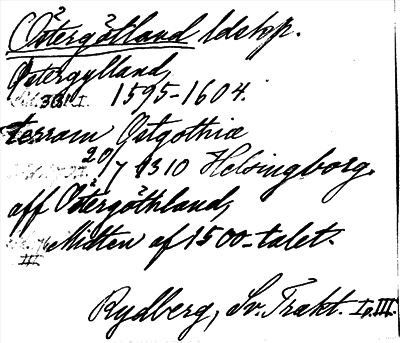 Östergötland ldskp.
Østergylland,
381. I. 1595-1604.
terram Ostgothiæ
20/7 1310 Helsingborg.
aff Östergöthland,
III Midten af 1500-talet.
Rydberg, Sv. Trakt. I o. III.